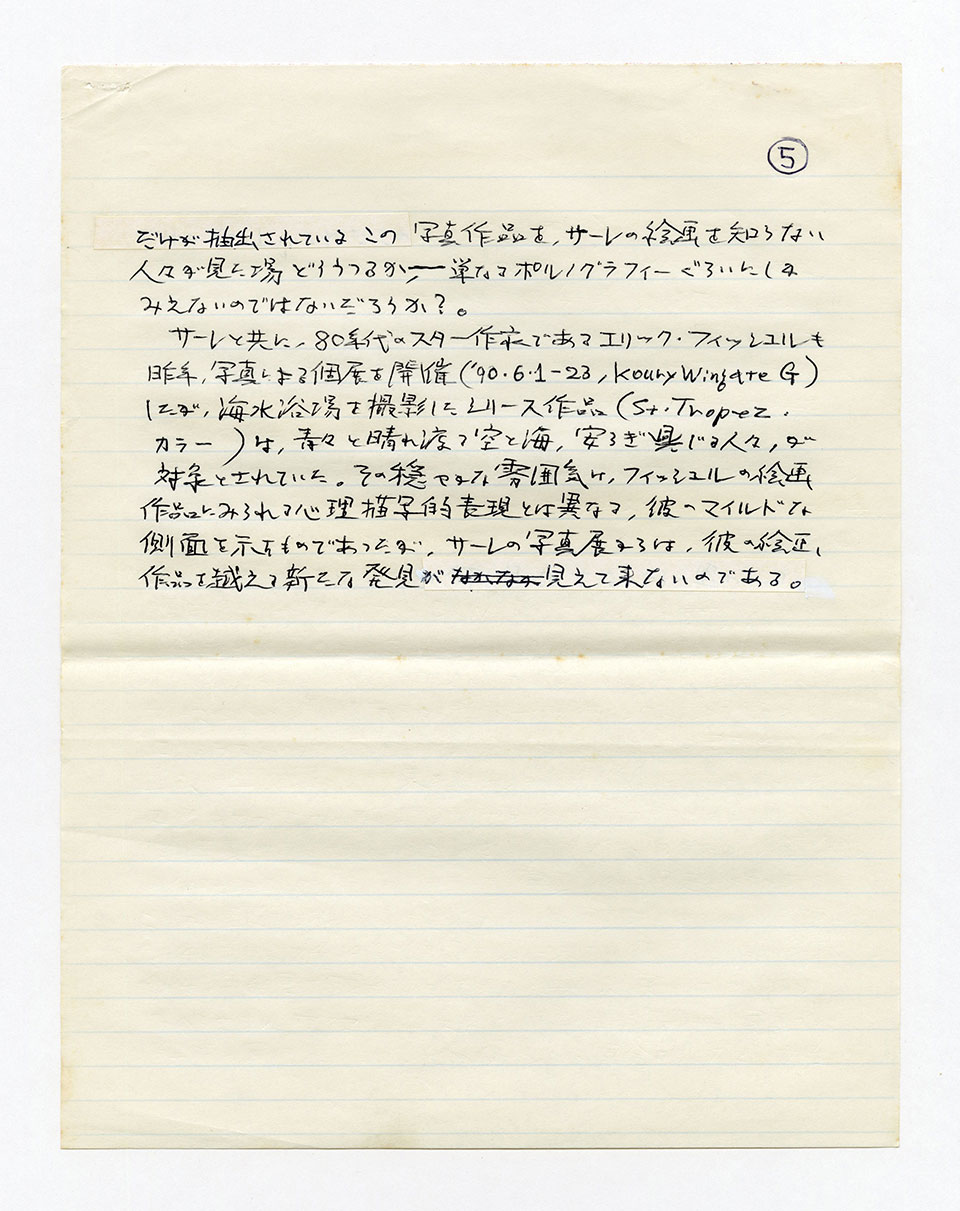 ⑤
だけが抽出されている この 写真作品を,サーレの絵画を知らない
人々が見た場どううつるか,― 単なるポルノグラフィーぐらいにしか
みえないのではないだろうか?。
サーレと共に,80年代のスター作家であるエリック・フィッシュルも
昨年,写真による個展を開催('90・6・1-23, Koury Wingate G)
したが,海水浴場を撮影したシリーズ作品(St. Tropez.
カラー )は,青々と晴れ渡る空と海,安らぎ興じる人々,が
対象とされていた。その穏やかな雰囲気は,フィッシュルの絵画
作品にみられる心理描写的表現とは異なる,彼のマイルドな
側面を示すものであったが,サーレの写真展からは,彼の絵画
作品を越える新たな発見が見えて来ないのである。